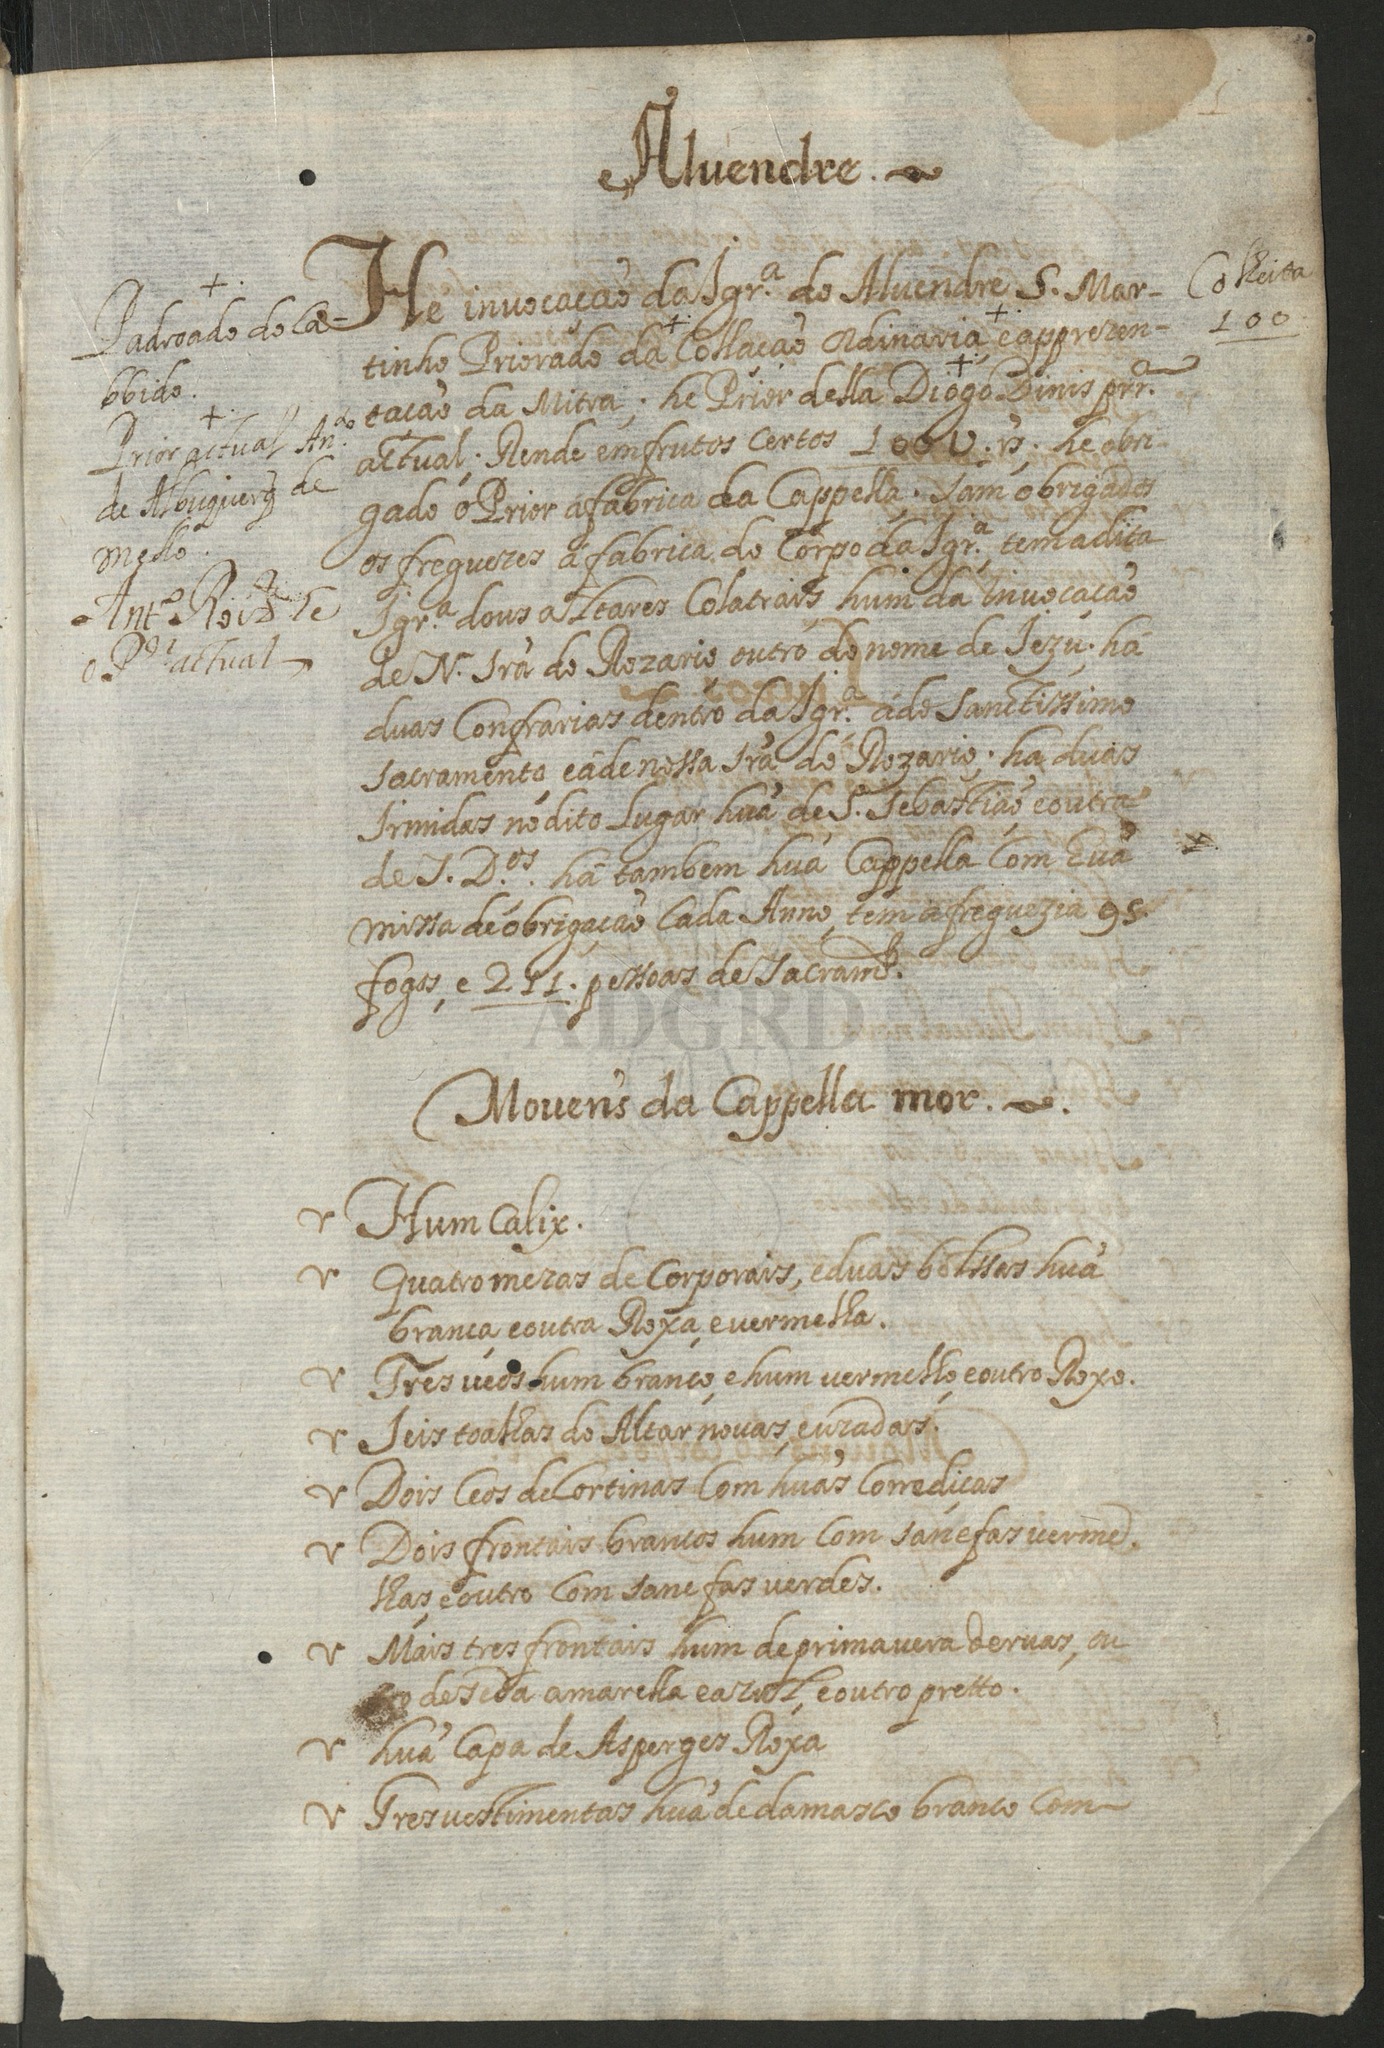 1
Aluendre.
Padroado do Ca-
bbido.
Prior actual An.do
de Albuquerq de
mello.
Ant.o Roiz he
o P.or actual
Colheita
100
He invocação da Igr.a do Aluendre S. Mar-
tinho Priorado da Collação Ordinaria e apprezen-
tação da Mitra, he Prior della Diogo Dinis prr.a
actual. Rende em frutos certos 100U. rs. he obri-
gado o Prior á fabrica da Cappella. sam obrigados
os freguezes á fabrica do Corpo da Igr.a, tem a dita
Igr.a dous altares Colatrais hum da invocação
de N. Sra do Rozario outro do nome de Jezu. há
duas Confrarias dentro da Igr.a a do Sanctissimo
sacramento, e a de nossa Sra do Rozario. ha duas
Irmidas no dito Lugar huã de S. Sebastião e outra
de S. D.os. há tambem huã Cappella Com huã
missa de obrigação Cada Anno, tem a freguezia 95.
fogos, e 211. pessoas de Sacram.to.
ADGRD
Mouens da Cappella mor.
v Hum Calix.
v Quatro mezas de Corporais, e duas bolssas huã
branca, e outra Roxa, e vermelha.
v Tres veos hum branco, e hum vermelho, e outro Roxo.
v Seis toalhas do Altar novas, e uzadas.
v Dois Ceos de Cortinas Com huãs Corrediças
v Dois frontais brancos hum Com sanefas verme-
lhas, e outro Com sanefas verdes.
v Mais tres frontais hum de primavera dervas, ou
tro de seda amarella e azul, e outro pretto.
v huã Capa de Asperges Roxa
v Tres vestimentas huã de damasco branco Com